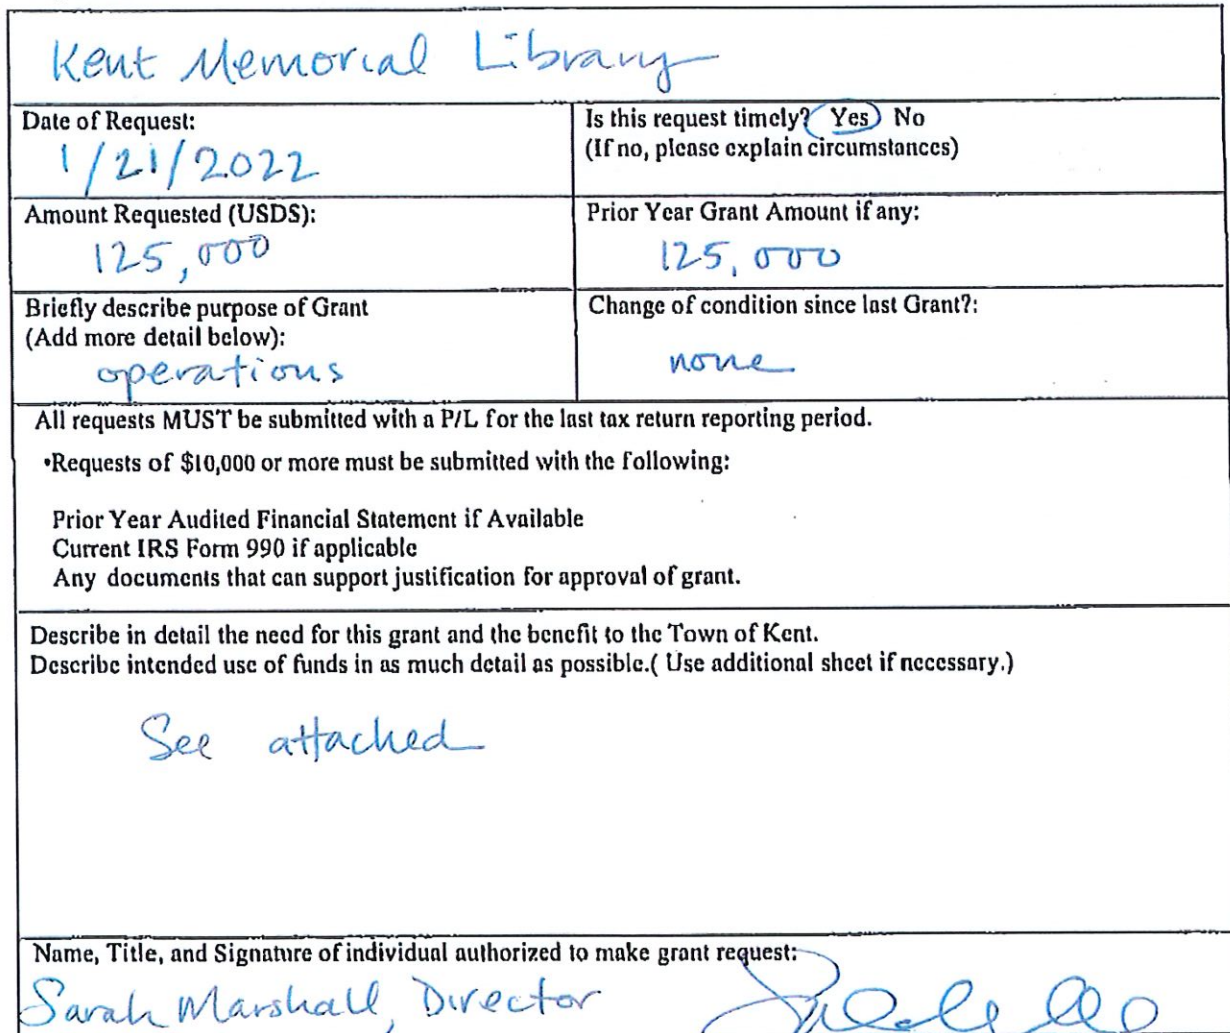 Kent Memorial Library
Date of Request:
1/21/2022
Is this request timely? Yes No
(If no, please explain circumstances)
Amount Requested (USDS):
125,000
Prior Year Grant Amount if any:
125,000
Briefly describe purpose of Grant
(Add more detail below):
operations
Change of condition since last Grant?:
none
All requests MUST be submitted with a P/L for the last tax return reporting period.
•Requests of $10,000 or more must be submitted with the following:
Prior Year Audited Financial Statement if Available
Current IRS Form 990 if applicable
Any documents that can support justification for approval of grant.
Describe in detail the need for this grant and the benefit to the Town of Kent.
Describe intended use of funds in as much detail as possible.( Use additional sheet if necessary.)
See attached
Name, Title, and Signature of individual authorized to make grant request:
Sarah Marshall, Director